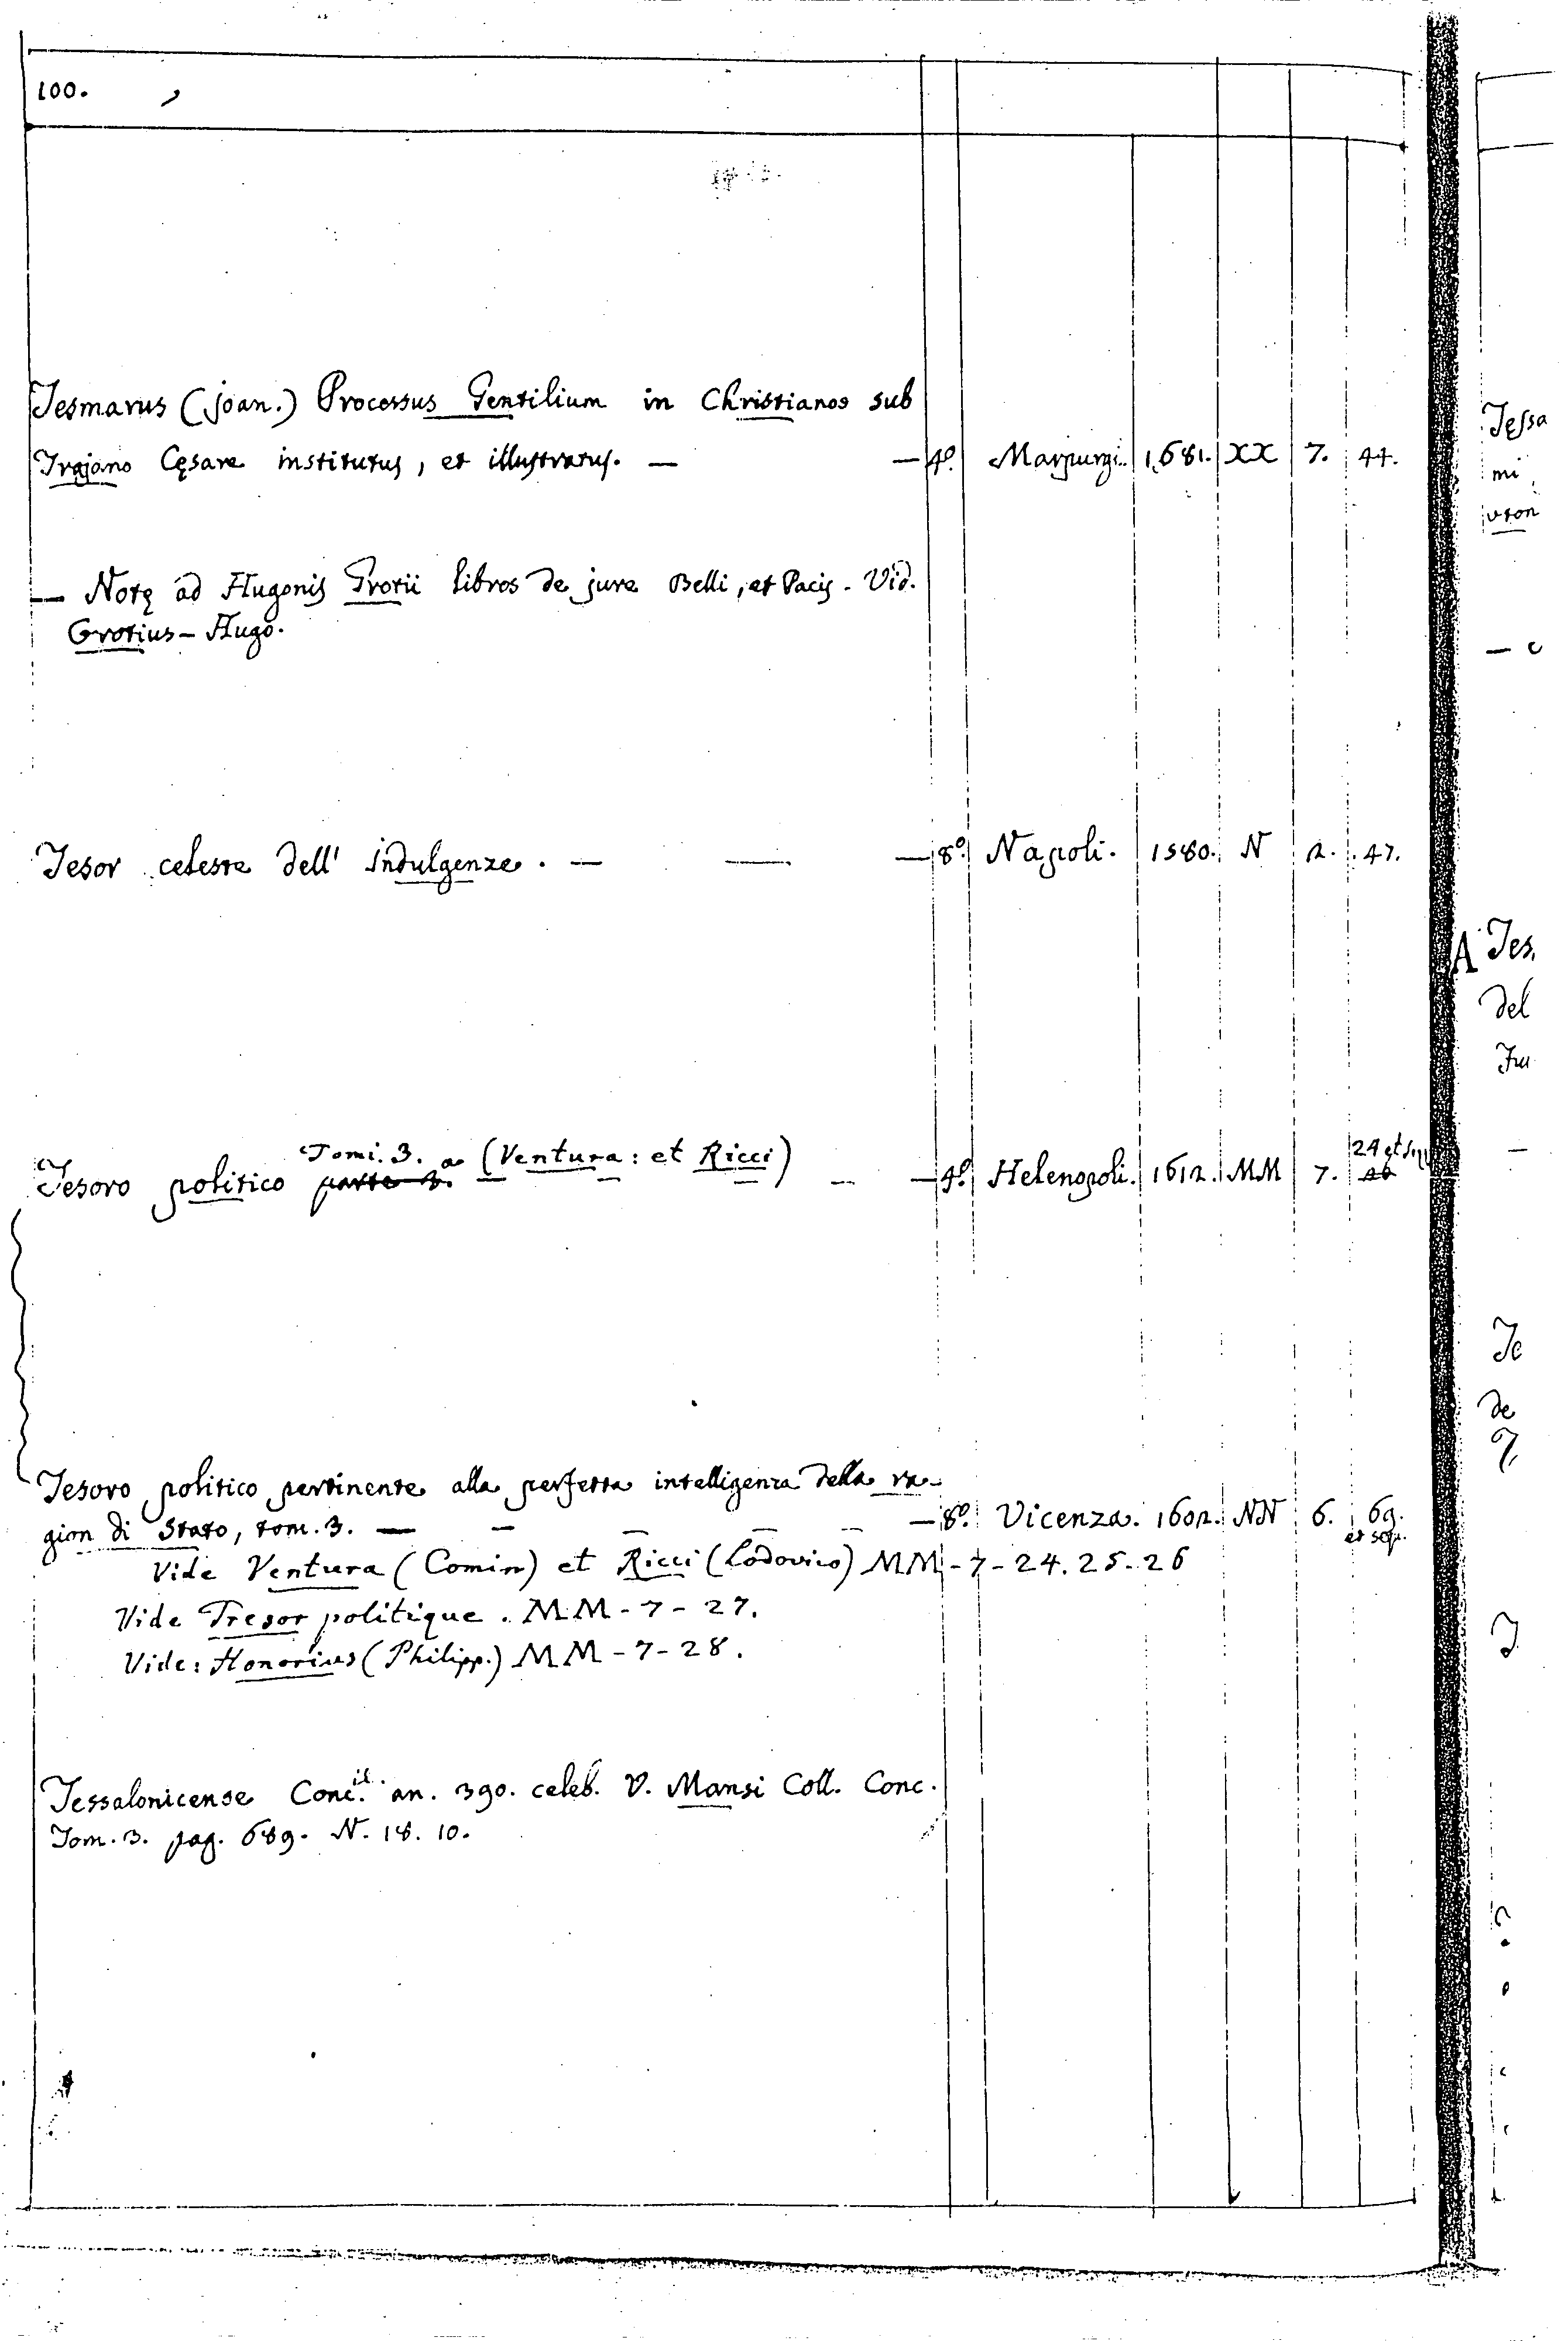 100.
Tesmarus (Joan.) Processus Gentilium in Christianos sub
Trajano Cęsare institutus, et illustratus. — — 4º. Marpurgi. 1681. XX 7. 44.
— Notę ad Hugonis Grotii libros de jure Belli, et Pacis. Vid.
Grotius - Hugo.
Tesor celeste dell' Indulgenze. — — — 8º. Napoli. 1580. N 2. 47.
Tomi. 3. a (Ventura: et Ricci) 24 et seq
Tesoro politico parte 3. — — 4º. Helenopoli. 1612. MM 7. 26
Tesoro politico pertinente alla perfetta intelligenza della ra-
gion di Stato, tom. 3. — — — — — — 8º. Vicenza. 1602. NN 6. 69.
et seqq.
Vide Ventura (Comin) et Ricci (Lodovico) MM - 7 - 24. 25. 26
Vide Tresor politique. MM - 7 - 27.
Vide: Honorius (Philipp.) MM - 7 - 28.
Tessalonicense Concil. an. 390. celeb. V. Mansi Coll. Conc.
Tom. 3. pag. 689. N. 18. 10.
Tessa
mi
Tes
del
de